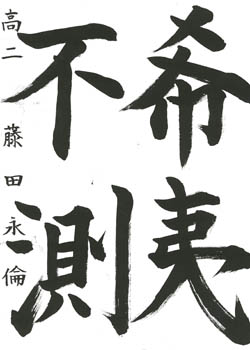 希夷
不測
高二 藤田永倫